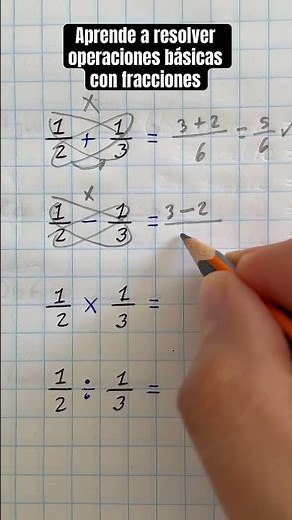 Aprende a resolver
operaciones básicas
con fracciones
x
1/2 + 1/3 = 3+2/6 = 5/6 ✓
x
1/2 - 1/3 = 3-2
1/2 x 1/3 =
1/2 ÷ 1/3 =